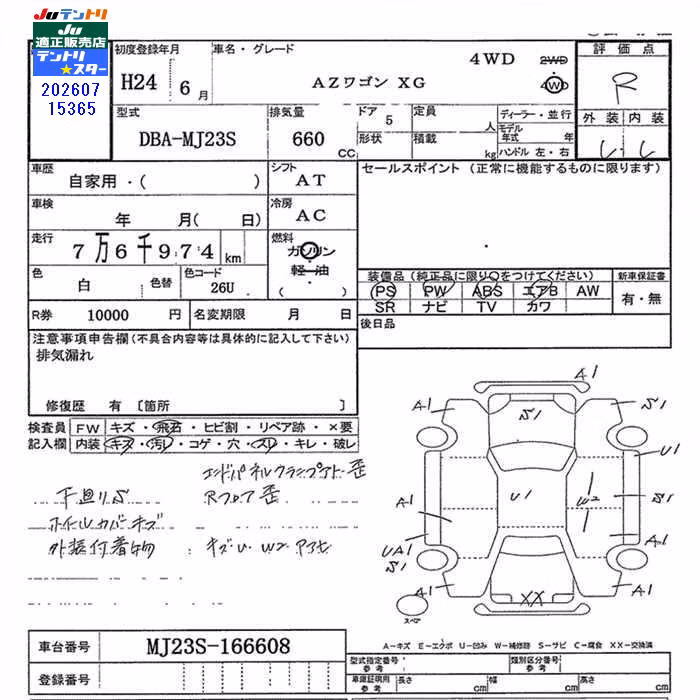 JUテントリ
JU
適正販売店
テントリ
★スター
202607
15365
初度登録年月 車名・グレード 評価点
H24 6月 AZワゴン XG 4WD 2WD 4WD R
型式 排気量 ドア 5 定員 人 ディーラー・並行 外装 内装
DBA-MJ23S 660 CC 形状 積載 kg モデル年式 年 ハンドル 左・右
車歴 シフト セールスポイント (正常に機能するものに限ります)
自家用・( ) AT
車検 年 月( 日) 冷房 AC
走行 7万6千974 km 燃料 ガソリン 軽・油 ( )
色 白 色替 色コード 26U
装備品(純正品に限り○をつけてください) 新車保証書
PS PW ABS エアB AW 有・無
SR ナビ TV カワ
R券 10000 円 名変期限 月 日 後日品
注意事項申告欄(不具合内容等は具体的に記入して下さい)
排気漏れ
修復歴 有 〔箇所 〕
検査員 記入欄 FW キズ・飛石・ヒビ割・リペア跡・×要
内装 キズ・汚レ・コゲ・穴・スレ・キレ・破レ
エンドパネルクランプアト・歪
下廻りS Rフロア歪
ホイルカバーキズ
外装付着物 : キズU W2 アセ
A1
A1 S1 S1
U1
A1 U1 W2 S1
UA1 A1
S1
A1 XX A1
スペア
車台番号 MJ23S-166608
A-キズ E-エクボ U-凹み W-補修跡 S-サビ C-腐食 XX-交換済
登録番号
型式指定番号 参考 類別区分番号 参考
車庫証明用 参考 長さ cm 幅 cm 高さ cm